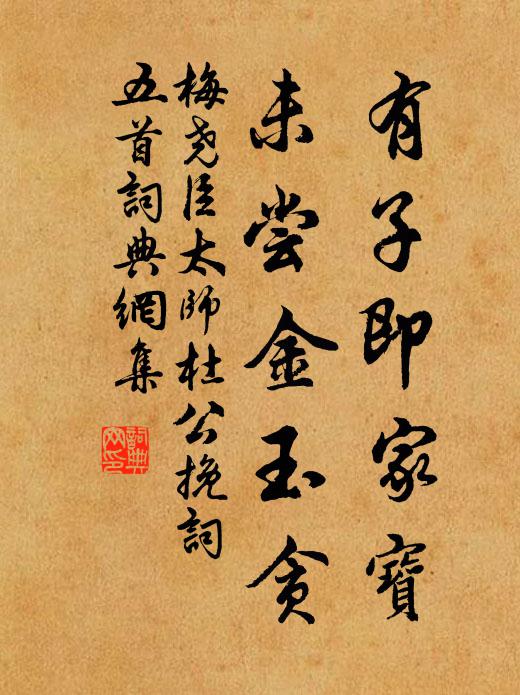 有子即家寶
未尝金玉贪
梅尧臣太師杜公挽詞
五首詞典網集
詞典
网印